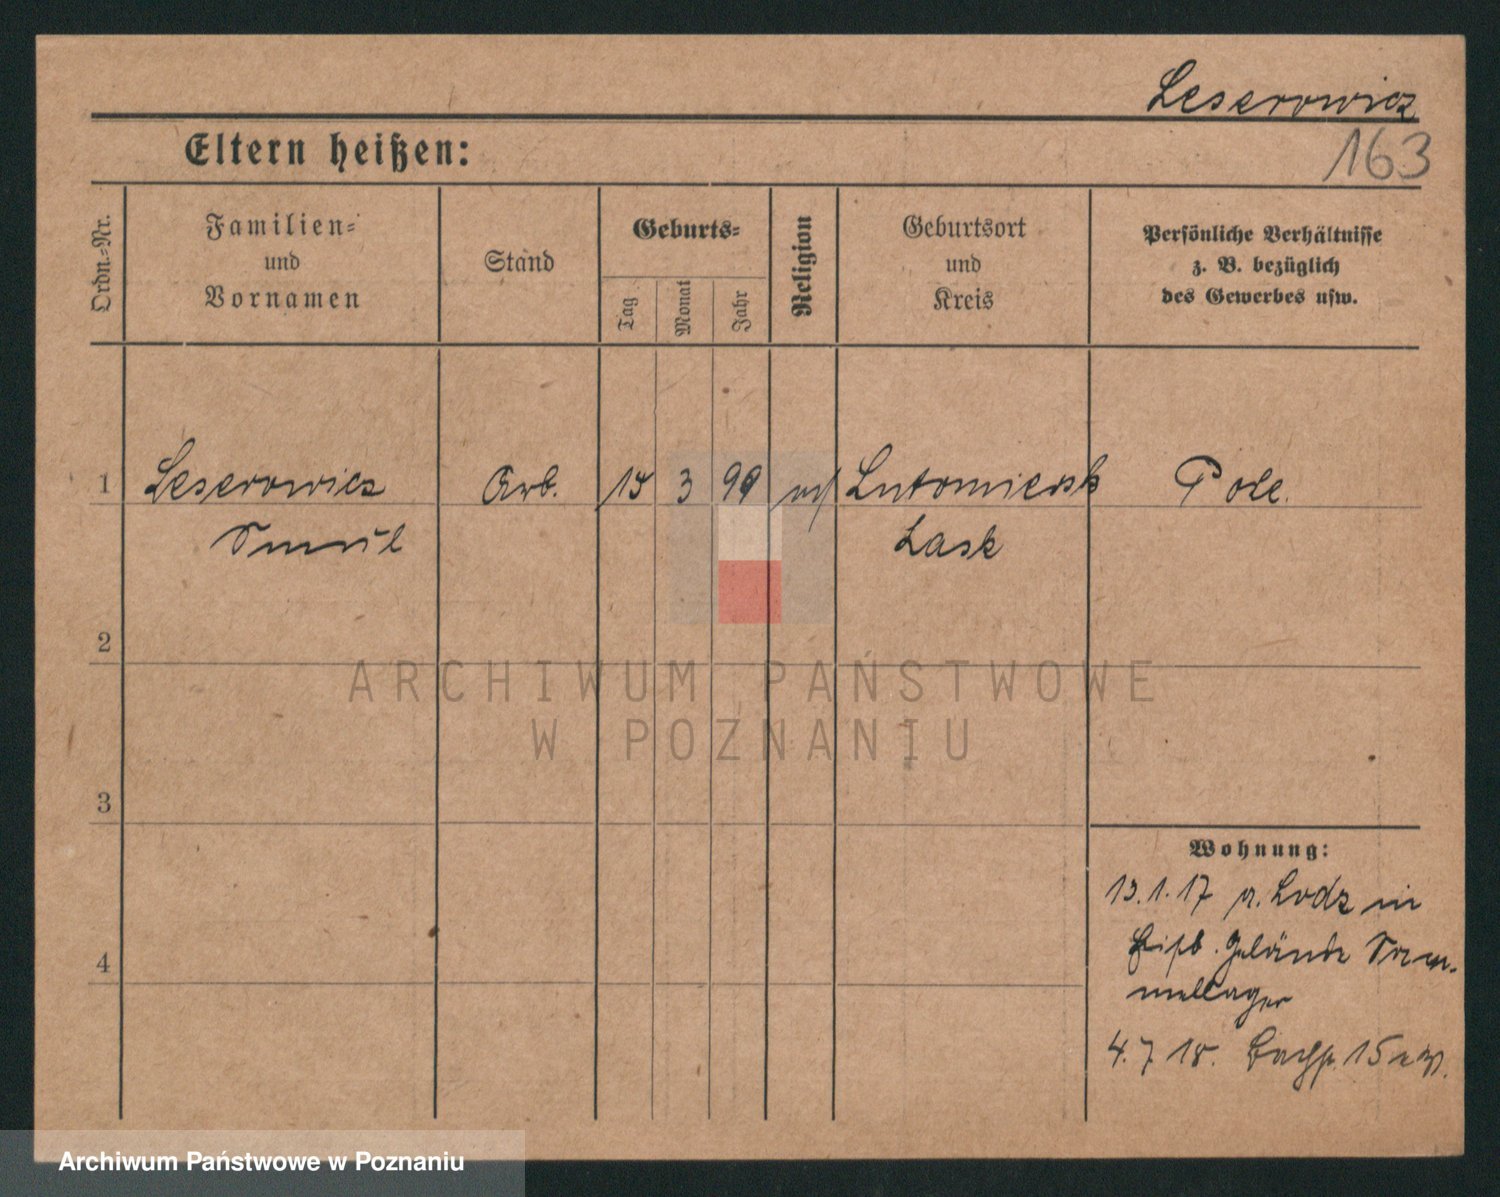 Leserowicz
163
Eltern heißen:
Ordn.-Nr.
Familien-
und
Vornamen
Stand
Geburts-
Tag
Monat
Jahr
Religion
Geburtsort
und
Kreis
Persönliche Verhältnisse
z. B. bezüglich
des Gewerbes usw.
1 Leserowicz Arb. 15 3 99 Lutomiersk Pole.
Smul
Lask
2
3
4
Wohnung:
13.1.17 Lodz in
Gelände Sam-
mellager
4.7.18. 15
ARCHIWUM PAŃSTWOWE
W POZNANIU
Archiwum Państwowe w Poznaniu